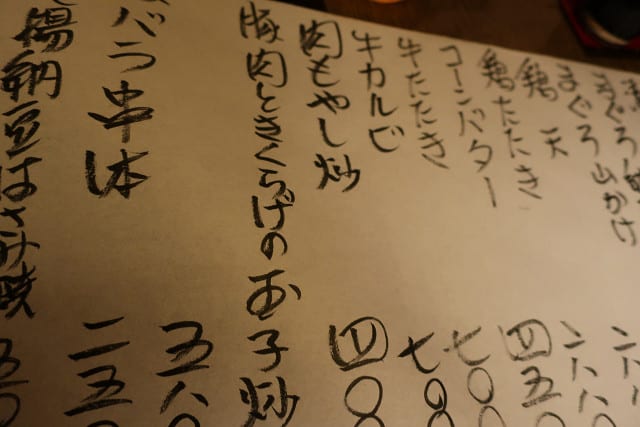 まぐろ山かけ
鶏天
鶏たたき
コーンバター
牛たたき
牛カルビ
肉もやし炒
豚肉ときくらげの玉子炒
バラ串一本
揚納豆はさみ焼
二八
二八〇
四五〇
七〇〇
七〇〇
四〇
五八〇
二五〇
五〇